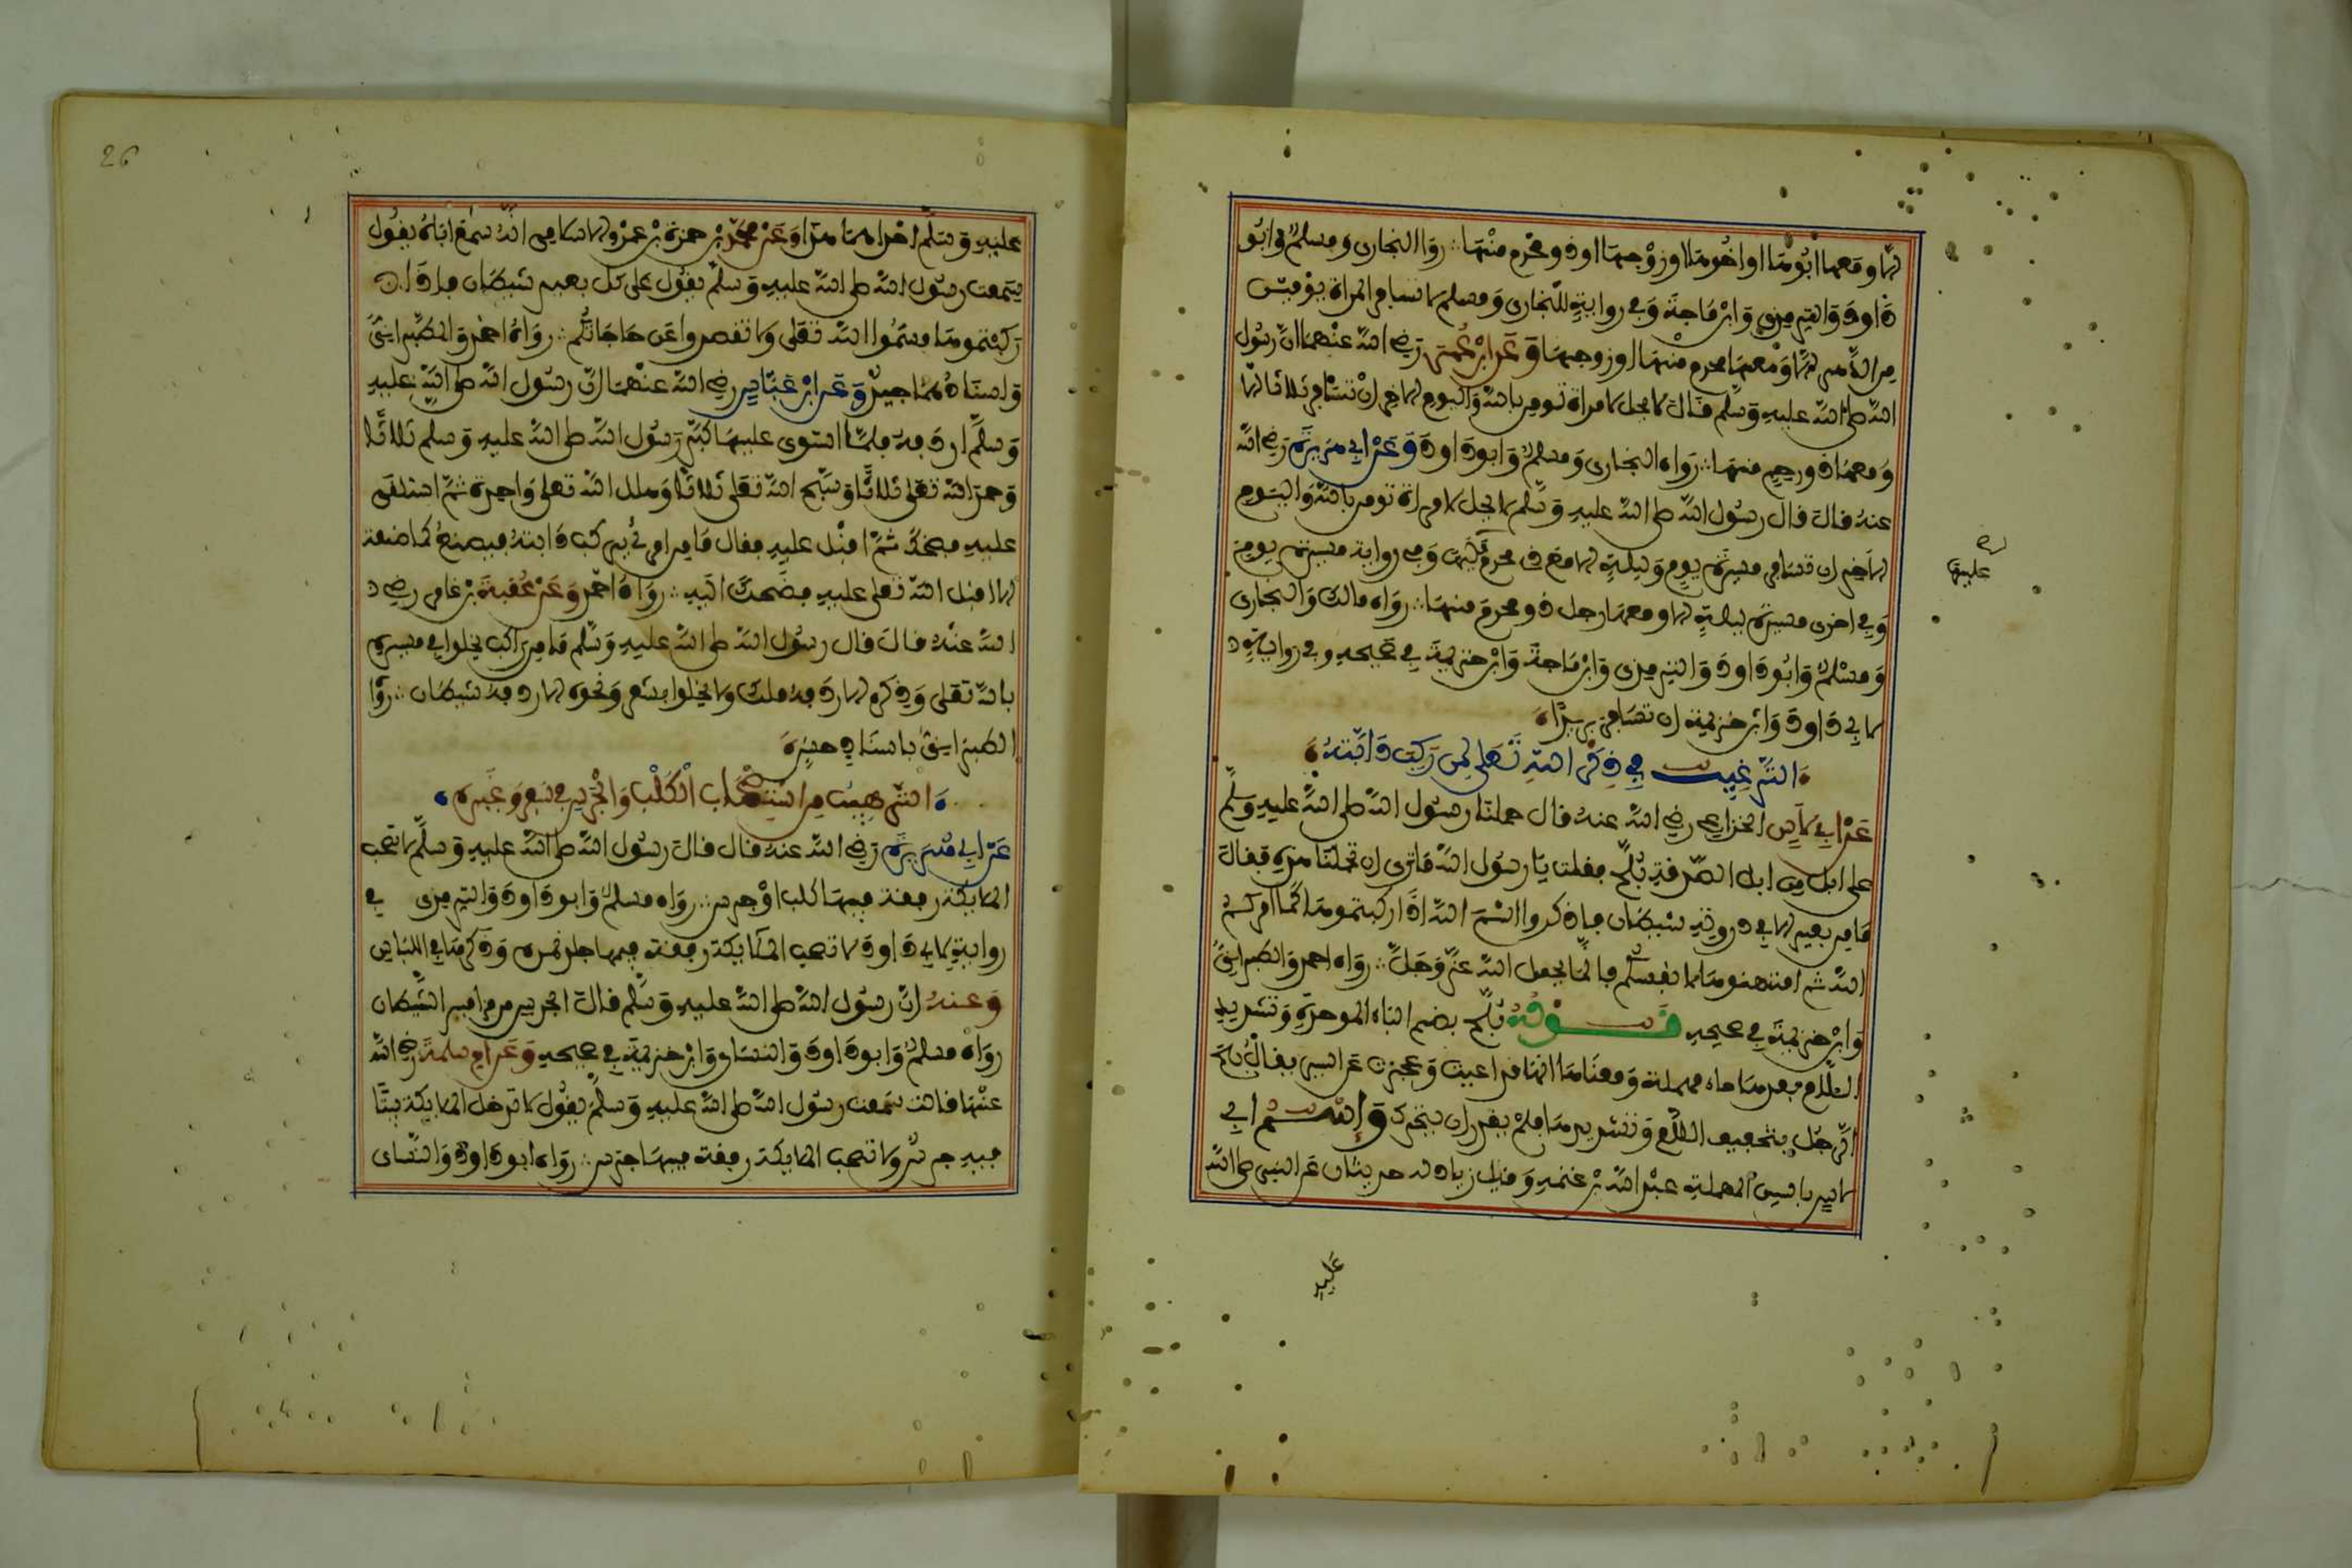 إلا ومعها أبوها أو أخوها أو زوجها أو ذو محرم منها ∴ رواه البخاري ومسلم وأبو
داود والترمذي وابن ماجة وفي رواية للبخاري ومسلم لا تسافر المرأة يومين
من الدهر إلا ومعها محرم منها أو زوجها وعن ابن عمر رضي الله عنهما أن رسول
الله صلى الله عليه وسلم قال لا يحل لامرأة تومن بالله واليوم الاخر أن تسافر ثلاثا إلا
ومعها ذو رحم منها ∴ رواه البخاري ومسلم وأبو داود وعن أبي هريرة رضي الله
عنه قال قال رسول الله صلى الله عليه وسلم لا يحل لامرأة تومن بالله واليوم
الآخر أن تسافر مسيرة يوم وليلة إلا مع ذي محرم وفي رواية مسيرة يوم
عليها
وفي أخرى مسيرة ليلة إلا ومعها رجل ذو محرم منها ∴ رواه مالك والبخاري
ومسلم وأبو داود والترمذي وابن ماجة وابن خزيمة في صحيحه وفي رواية
لأبي داود وابن خزيمة أن تسافر بريدا
الترغيب في ذكر الله تعلى لمن ركب دابته
عن أبي لاس الخزاعي رضي الله عنه قال حملنا رسول الله صلى الله عليه وسلم
على إبل من إبل الصدقة بلح فقلت يا رسول الله ما ترى أن تحملنا هذه فقال
ما من بعير إلا في ذروته شيطان فاذكروا اسم الله إذا ركبتموها كما أمركم
الله ثم امتهنوها لأنفسكم فإنما يحمل الله عز وجل ∴ رواه أحمد والطبراني
وابن خزيمة في صحيحه قوله بلح بضم الباء الموحدة وتشديد
اللام بعدها حاء مهملة ومعناها أنها قد أعيت وعجزت عن السير يقال بلح
الرجل بتخفيف اللام وتشديدها فلم يقدر أن يتحرك واسم أبي
لاس بالسين المهملة عبد الله بن غنمة وقيل زياد له حديثان عن النبي صلى الله
عليه
26
عليه وسلم أحدهما هذا وعن محمد بن حمزة بن عمرو الأسلمي أنه سمع أباه يقول
سمعت رسول الله صلى الله عليه وسلم يقول على كل بعير شيطان فإذا
ركبتموها فسموا الله تعلى ولا تقصروا عن حاجاتكم ∴ رواه أحمد والطبراني
وإسنادهما جيد وعن ابن عباس رضي الله عنهما أن رسول الله صلى الله عليه
وسلم أردفه فلما استوى عليها كبر رسول الله صلى الله عليه وسلم ثلاثا
وحمد الله تعلى ثلاثا وسبح الله تعلى ثلاثا وهلل الله تعلى واحدة ثم استلقى
عليه فضحك ثم أقبل عليه فقال ما من امرئ يركب دابته فيصنع كما صنعت
إلا أقبل الله تعلى عليه فضحك إليه ∴ رواه أحمد وعن عقبة بن عامر رضي
الله عنه قال قال رسول الله صلى الله عليه وسلم ما من راكب يخلوا في مسيره
بالله تعلى وذكره إلا ردفه ملك ولا يخلوا بشعر ونحوه إلا ردفه شيطان ∴ رواه
الطبراني باسناد حسن
الترهيب من استصحاب الكلب والجرس في سفر وغيره
عن أبي هريرة رضي الله عنه قال قال رسول الله صلى الله عليه وسلم لا تصحب
الملائكة رفقة فيها كلب أو جرس ∴ رواه مسلم وأبو داود والترمذي في
رواية لأبي داود لا تصحب الملائكة رفقة فيها جلد نمر وذكرها في اللباس
وعنه أن رسول الله صلى الله عليه وسلم قال الجرس مزامير الشيطان
رواه مسلم وأبو داود والنسائي وابن خزيمة في صحيحه وعن أم سلمة رضي الله
عنها قالت سمعت رسول الله صلى الله عليه وسلم يقول لا تدخل الملائكة بيتا
فيه جرس ولا تصحب الملائكة رفقة فيها جرس ∴ رواه أبو داود والنسائي